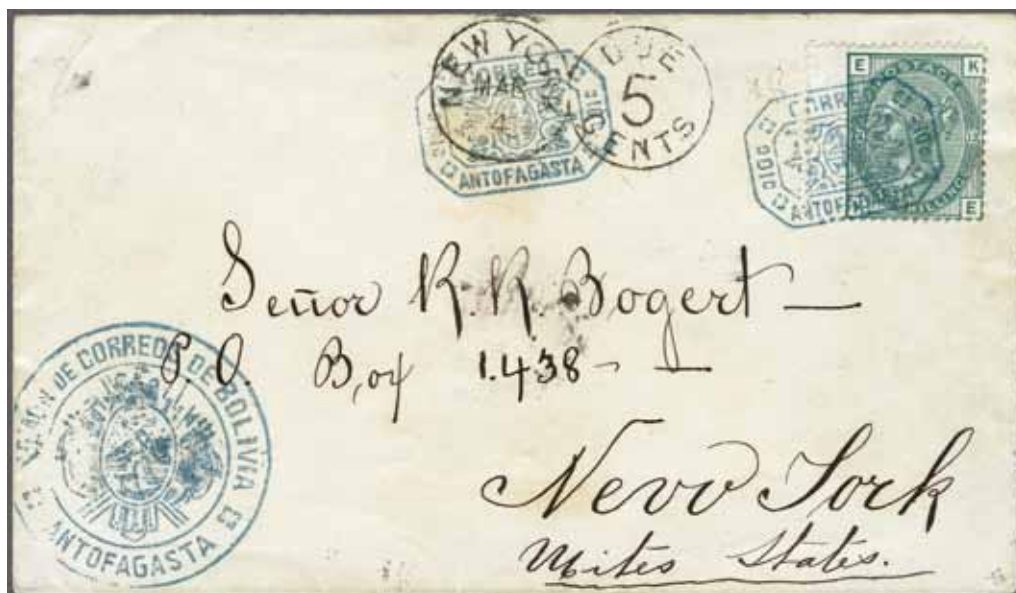 NEW YORK
MAR
4
DUE
5
CENTS
CORREO
DIC
ANTOFAGASTA
E K
POSTAGE
CORREO
DIC
ANTOFAGASTA
E
Señor R. R. Bogert —
P. O. Box 1.438 - —
New York
Unites States.
DE CORREOS DE BOLIVIA
ANTOFAGASTA